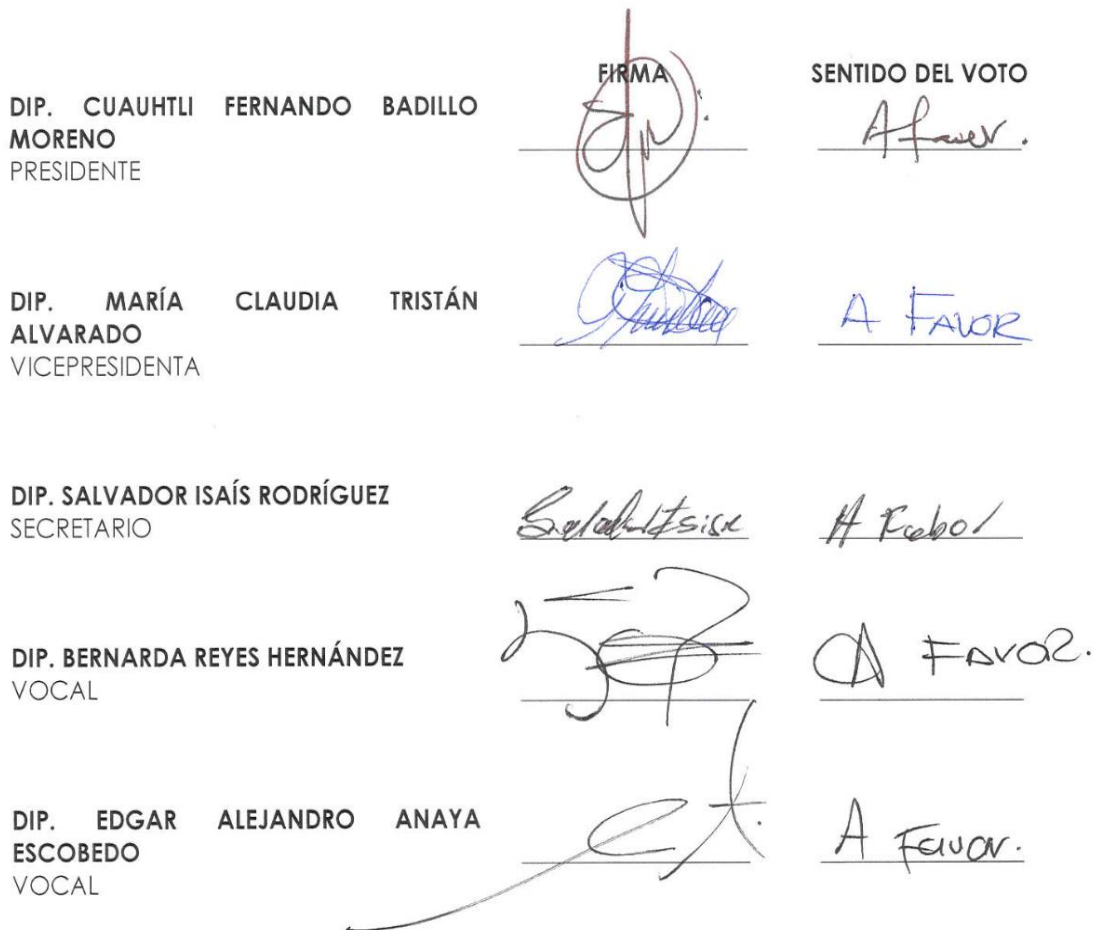 FIRMA SENTIDO DEL VOTO
DIP. CUAUHTLI FERNANDO BADILLO
MORENO A favor.
PRESIDENTE
DIP. MARÍA CLAUDIA TRISTÁN
ALVARADO A FAVOR
VICEPRESIDENTA
DIP. SALVADOR ISAÍS RODRÍGUEZ
SECRETARIO A Fabor
DIP. BERNARDA REYES HERNÁNDEZ A FAVOR.
VOCAL
DIP. EDGAR ALEJANDRO ANAYA
ESCOBEDO A Favor.
VOCAL